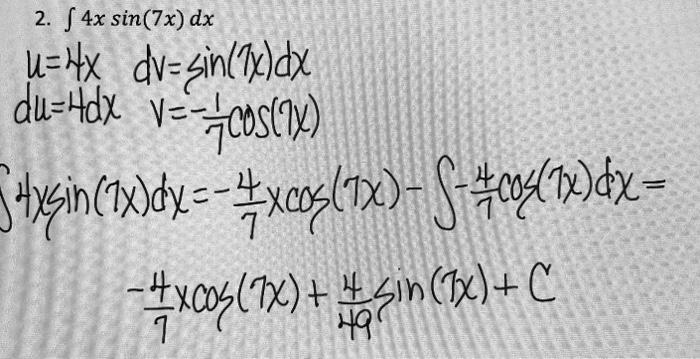 2. ∫ 4x sin(7x) dx
u=4x dv=sin(7x)dx
du=4dx v=-1/7cos(7x)
∫4xsin(7x)dx=-4/7xcos(7x)-∫-4/7cos(7x)dx=
-4/7xcos(7x)+4/49sin(7x)+C